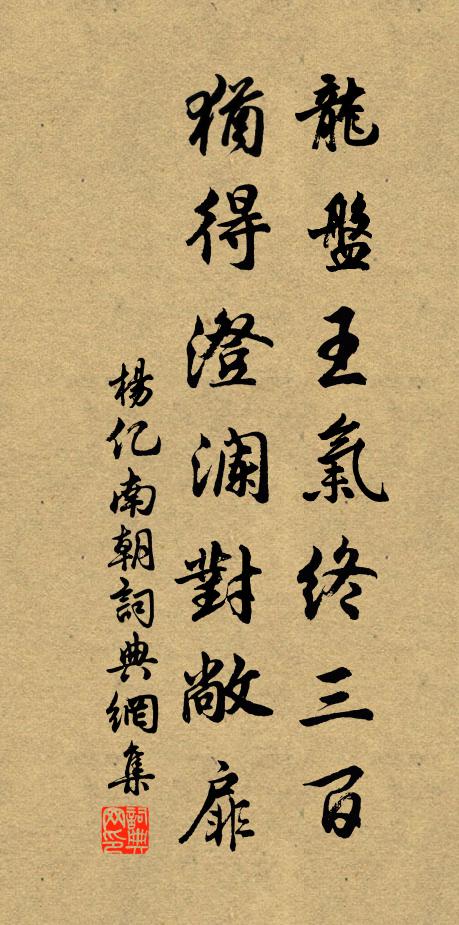 龍盤王氣終三百
猶得澄瀾對敞扉
楊亿南朝詞典網集
詞典網印